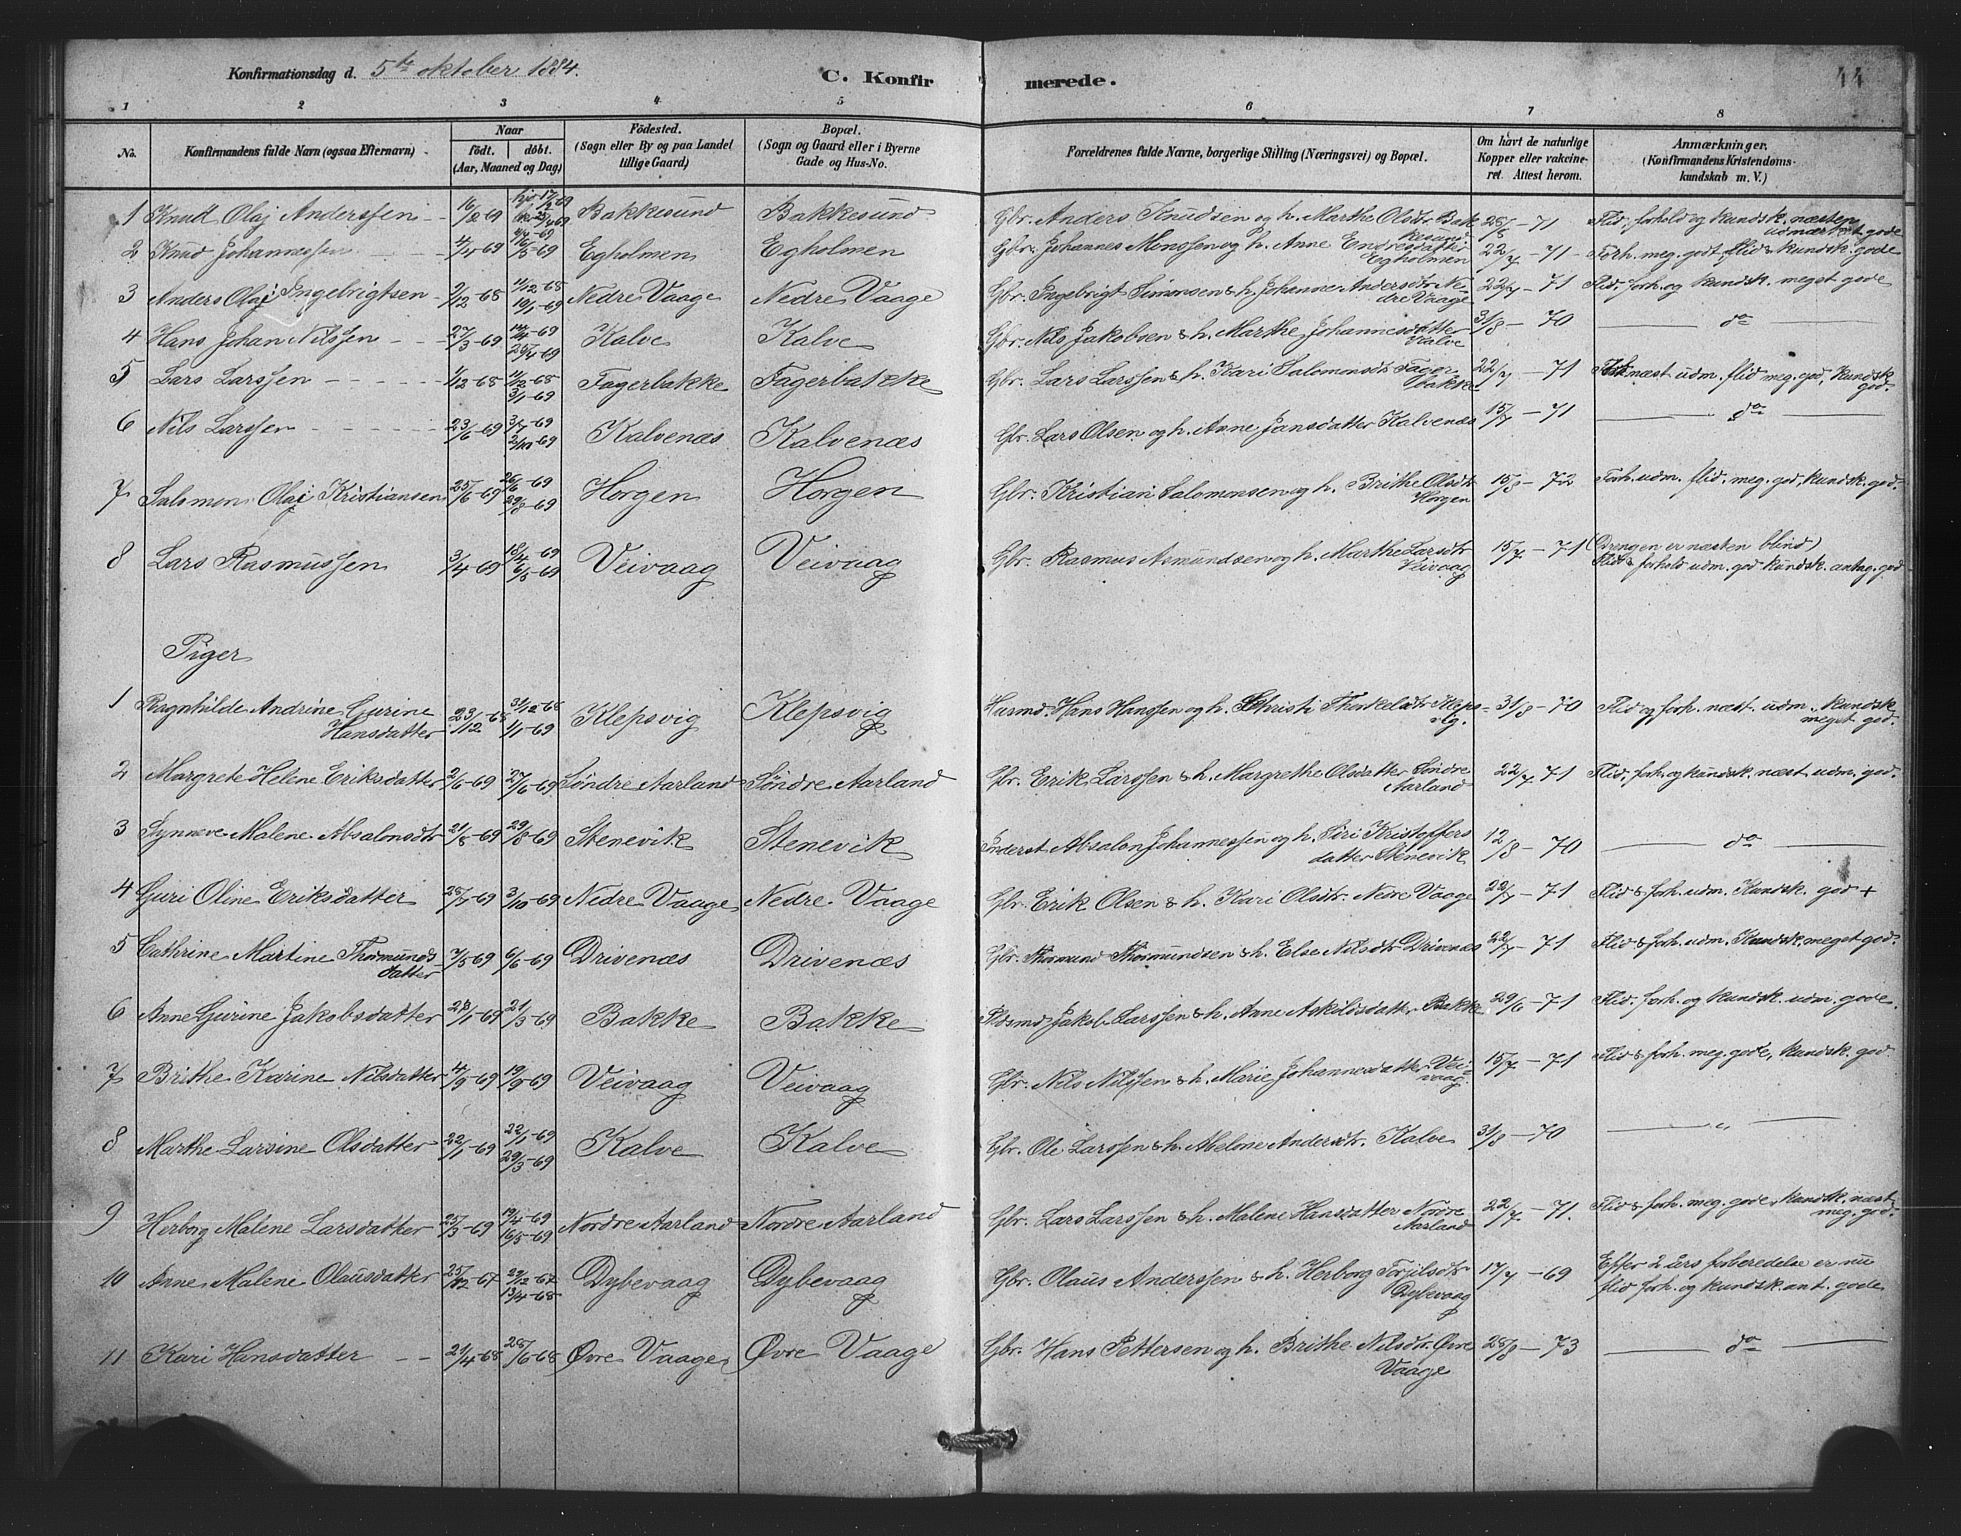 Konfirmationsdag d. 5te oktober 1884.
C. Konfirmerede.
44
1 2 3 4 5 6 7 8
No.
Konfirmandens fulde Navn (ogsaa Efternavn)
Naar
födt. döbt.
(Aar, Maaned og Dag)
Födested.
(Sogn eller By og paa Landet
tillige Gaard)
Bopæl.
(Sogn og Gaard eller i Byerne
Gade og Hus-No.
Forældrenes fulde Navne, borgerlige Stilling (Næringsvei) og Bopæl.
Om havt de naturlige
Kopper eller vakcine-
ret. Attest herom.
Anmærkninger.
(Konfirmandens Kristendoms-
kundskab m. V.)
1 Knud Olaj Anderssen 16/2 69 Bakkesund Bakkesund Gbr. Anders Knudsen og h. Marthe Olsdtr Bakkesund 25/8 - 71 Flid, forhold og kundsk. næsten udmærket gode
2 Knud Johannessen 4/4 69 Egholmen Egholmen Gbr. Johannes Monssen og h. Anne Endresdatter Egholmen 22/7 - 71 Forh. meg. godt, flid & kundsk. gode
3 Anders Olaj Ingebrigtsen 2/12 -68 4/12 -68 10/1 -69 Nedre Vaage Nedre Vaage Gbr. Ingebrigt Simonsen & h. Johanne Andersdtr Nedre Vaage 22/7 - 71 Flid, forh. og kundsk. meget gode
4 Hans Johan Nilssen 27/3 -69 25/4 -69 Kalve Kalve Gbr. Nils Jakobsen & h. Marthe Johannesdatter Kalve 31/8 - 70 do
5 Lars Larssen 1/12 -68 11/12 -68 3/1 -69 Fagerbakke Fagerbakke Gbr. Lars Larssen & h. Kari Salomonsdtr Fagerbakke 22/7 - 71 næst udm. flid meg. god, kundsk. god.
6 Nils Larssen 23/6 -69 3/7 -69 2/10 -69 Kalvenæs Kalvenæs Gbr. Lars Olsen og h. Anne Jansdatter Kalvenæs 15/7 - 71 do
7 Salomon Olaj Kristiansen 25/6 -69 26/6 -69 29/8 -69 Horgen Horgen Gbr. Kristian Salomonsen og h. Brithe Olsdtr Horgen 15/8 - 72 Forh. udm. flid. meg. god, kundsk. god.
8 Lars Rasmussen 3/4 -69 18/4 -69 6/5 -69 Veivaag Veivaag Gbr. Rasmus Asmundsen og h. Marthe Larsdtr Veivaag 15/7 - 71 (Drengen er næsten blind) Flid & forhold udm. god kundsk. antag. god
Piger
1 Ragnhilde Andrine Gurine Hansdatter 23/12 -68 31/12 -68 1/1 -69 Klepsvig Klepsvig Husmd. Hans Hanssen og h. Christi Thorkelsdtr Klepsvig. 31/8 - 70 Flid og forh. næst. udm., kundsk. meget god.
2 Margrete Helene Eriksdatter 2/6 -69 27/6 -69 Söndre Aarland Söndre Aarland Gbr. Erik Larssen & h. Margrethe Olsdatter Söndre Aarland 22/7 71 Flid, forh. og kundsk. næst udm. god.
3 Synneve Malene Absalonsdtr 21/8 -69 29/8 -69 Stenevik Stenevik Inderst Absalon Johannessen og h. Siri Kristoffersdatter Stenevik 12/8 - 70 do
4 Guri Oline Eriksdatter 3/10 -69 Nedre Vaage Nedre Vaage Gbr. Erik Olsen & h. Kari Olsdtr. Nedre Vaage 22/7 - 71 Flid & forh. udm. Kundsk. god +
5 Cathrine Martine Thormundsdatter 7/5 69 6/6 -69 Drivenæs Drivenæs Gbr. Thormund Thormundsen & h. Else Nilsdtr Drivenæs 22/7 - 71 Flid & forh. udm. Kundsk. meget god.
6 Anne Gurine Jakobsdatter 28/1 -69 21/3 -69 Bakke Bakke Jakob Larssen & h. Anne Askildsdatter Bakke 29/6 - 71 Flid. forh. og kundsk. udm. gode.
7 Brithe Karine Nilsdatter 4/9 -69 19/9 -69 Veivaag Veivaag Gbr. Nils Nilssen & h. Marie Johannesdatter Veivaag. 15/7 - 71 Flid & forh. meg. gode, kundsk. god
8 Marthe Larsine Olsdatter 22/1 -69 22/1 -69 29/3 -69 Kalve Kalve Gbr. Ole Larssen & h. Abelone Andersdtr. Kalve 31/8 - 70 "
9 Herborg Malene Larsdatter 25/3 -69 19/4 -69 16/5 -69 Nordre Aarland Nordre Aarland Gbr. Lars Larssen & h. Malene Hansdatter Nordre Aarland 22/7 - 71. Flid & forh. meg. gode, kundsk. næst meg. god.
10 Anne Malene Olausdatter 25/12 -67 27/12 -67 13/4 -68 Dybevaag Dybevaag Gbr. Olaus Anderssen & h. Herborg Torjilsdtr Dybevaag 17/7 - 69 Efter 2 Aars forberedelse er nu flid forh. og kundsk. ant. gode
11 Kari Hansdatter 29/4 -68 28/6 -68 Øvre Vaage Øvre Vaage Gbr. Hans Pettersen og h. Brithe Nilsdtr. Øvre Vaage 28/8 - 73 do